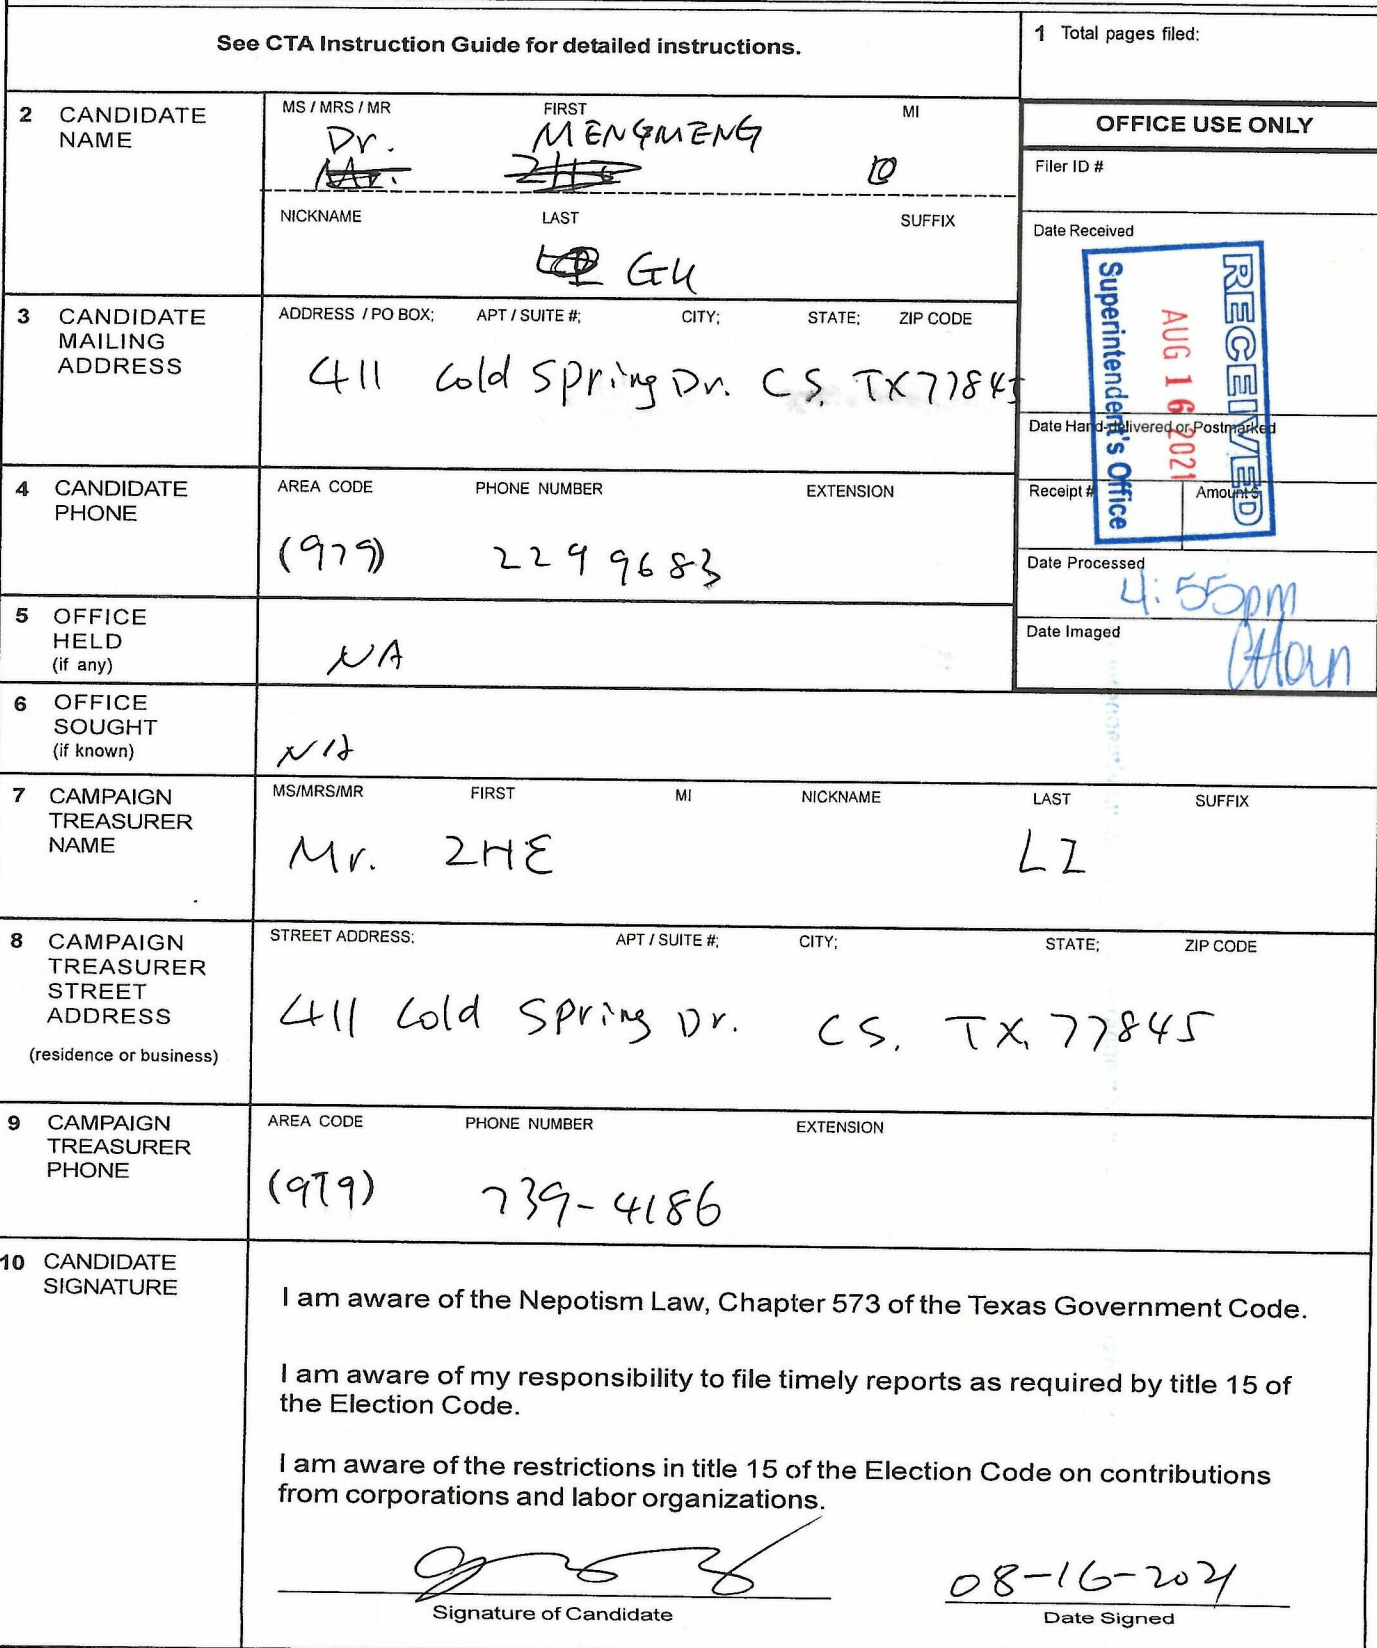 See CTA Instruction Guide for detailed instructions.
1 Total pages filed:
2 CANDIDATE NAME
MS / MRS / MR
FIRST
MI
Dr.
MENGMENG
Mr.
ZHE
NICKNAME
LAST
SUFFIX
GU
OFFICE USE ONLY
Filer ID #
Date Received
RECEIVED
AUG 16 2021
Superintendent's Office
Date Hand-delivered or Postmarked
Receipt #
Amount $
Date Processed
4:55pm
Date Imaged
3 CANDIDATE MAILING ADDRESS
ADDRESS / PO BOX;
APT / SUITE #;
CITY;
STATE;
ZIP CODE
411 Cold Spring Dr. CS. TX 77845
4 CANDIDATE PHONE
AREA CODE
PHONE NUMBER
EXTENSION
(979)
229 9683
5 OFFICE HELD (if any)
NA
6 OFFICE SOUGHT (if known)
NA
7 CAMPAIGN TREASURER NAME
MS/MRS/MR
FIRST
MI
NICKNAME
LAST
SUFFIX
Mr. ZHE
LI
8 CAMPAIGN TREASURER STREET ADDRESS
(residence or business)
STREET ADDRESS;
APT / SUITE #;
CITY;
STATE;
ZIP CODE
411 Cold Spring Dr. CS. TX. 77845
9 CAMPAIGN TREASURER PHONE
AREA CODE
PHONE NUMBER
EXTENSION
(979)
739-4186
10 CANDIDATE SIGNATURE
I am aware of the Nepotism Law, Chapter 573 of the Texas Government Code.
I am aware of my responsibility to file timely reports as required by title 15 of
the Election Code.
I am aware of the restrictions in title 15 of the Election Code on contributions
from corporations and labor organizations.
08-16-2021
Signature of Candidate
Date Signed